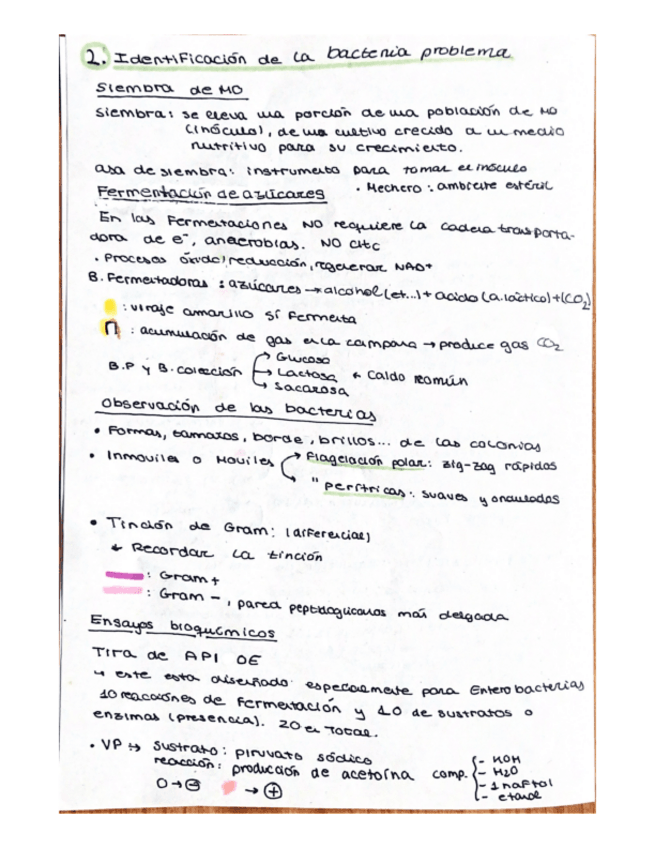 2. Identificación de la bacteria problema
Siembra de MO
Siembra: se lleva una porción de una población de MO
(inóculo), de un cultivo crecido a un medio
nutritivo para su crecimiento.
asa de siembra: instrumento para tomar el inóculo
• Mechero: ambiente estéril
Fermentación de azúcares
En las fermentaciones NO requiere la cadena transporta-
dora de e⁻, anaerobias. NO
• Procesos óxido/reducción, regenerar NAD+
B. Fermentadoras: azúcares → alcohol (et...) + acido (a. láctico) + (CO₂)
: viraje amarillo sí fermenta
: acumulación de gas en la campana → produce gas CO₂
B.P y B. colección → Glucosa
→ Lactosa ← Caldo común
→ Sacarosa
Observación de las bacterias
• Formas, tamaños, borde, brillos... de las colonias
• Inmoviles o Moviles → Flagelación polar: zig-zag rápidos
→ " perítricas: suaves y onduladas
• Tinción de Gram: (diferencial)
Recordar la tinción
: Gram +
: Gram -, pared peptidoglucanos más delgada
Ensayos bioquímicos
Tira de API 0E
este esta diseñado especialmente para Enterobacterias
10 reacciones de fermentación y 10 de sustratos o
enzimas (presencia). 20 en Total.
• VP ↦ sustrato: piruvato sódico
reacción: producción de acetoína comp. - KOH
- H₂O
- 1 naftol
- etanol
O → ⊖ → ⊕